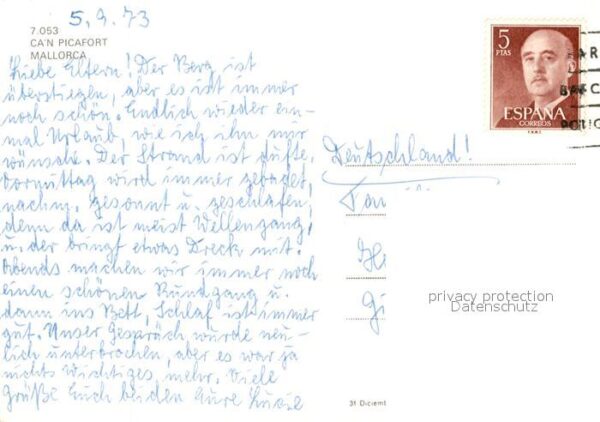 5.9.73
7.053
CA'N PICAFORT
MALLORCA
Liebe Eltern! Der Berg ist
überstiegen, aber es ist immer
noch schön. Endlich wieder ein-
mal Urlaub, wie ich ihn mir
wünsche. Der Strand ist dufte.
Vormittag wird immer gebadet,
nachm. gesonnt u. geschlafen,
denn da ist meist Wellengang,
u. der bringt etwas Dreck mit.
Abends machen wir immer noch
einen schönen Rundgang u.
dann ins Bett, Schlaf ist immer
gut. Unser Gespräch wurde neu-
lich unterbrochen, aber es war ja
nichts wichtiges mehr. Viele
Grüße Euch beiden Eure Lucie
5
PTAS
ESPAÑA
CORREOS
Deutschland!
privacy protection
Datenschutz
31 Diciemt